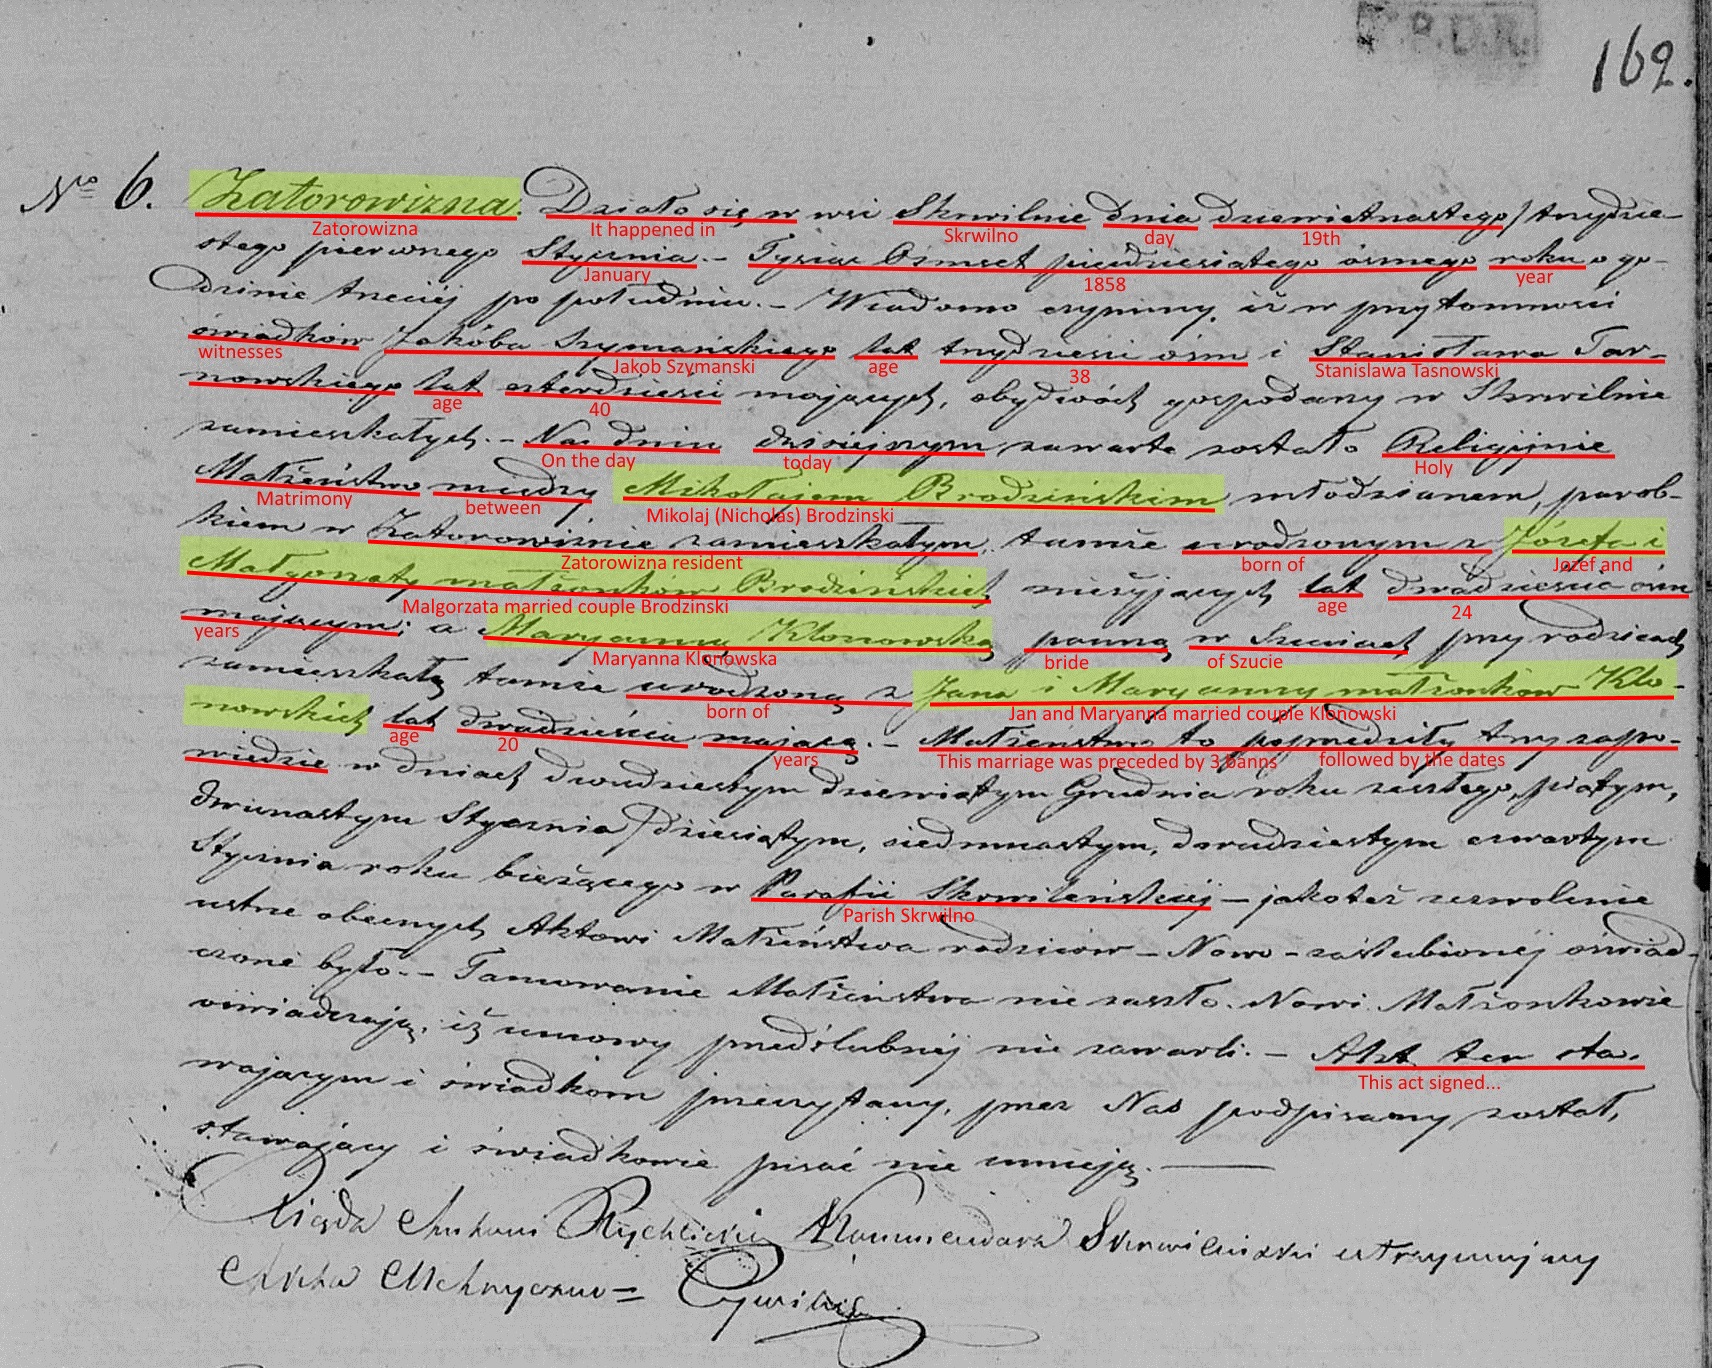 P.D.R.
162.
No 6. Zatorowizna. Działo się w wsi Skrwilnie dnia dziewiętnastego / trzydzie-
Zatorowizna It happened in Skrwilno day 19th
stego pierwszego Stycznia. – Tysiąc Ośmset pięćdziesiątego ósmego roku o go-
January 1858 year
dzinie trzeciéj po południu. – Wiadomo czynimy, iż w przytomności
świadków Jakóba Szymańskiego lat trzydzieści ośm i Stanisława Tar-
witnesses Jakob Szymanski age 38 Stanislawa Tasnowski
nowskiego lat czterdzieści mających, obydwóch gospodarzy w Skrwilnie
age 40
zamieszkałych. – Na dniu dzisiejszym zawarte zostało Religijnie
On the day today Holy
Małżeństwo między Mikołajem Brodzińskim młodzianem, parob-
Matrimony between Mikolaj (Nicholas) Brodzinski
kiem w Zatorowiznie zamieszkałym, tamże urodzonym z Józefa i
Zatorowizna resident born of Jozef and
Małgorzaty małżonków Brodzińskich nieżyjących lat dwadzieścia ośm
Malgorzata married couple Brodzinski age 24
mającym; a Maryanną Klonowską panną w Szuciach przy rodzicach
years Maryanna Klonowska bride of Szucie
zamieszkałą tamże urodzoną z Jana i Maryanny małżonków Klo-
born of Jan and Maryanna married couple Klonowski
nowskich lat dwadzieścia mającą. – Małżeństwo to poprzedziły trzy zapo-
age 20 years This marriage was preceded by 3 banns followed by the dates
wiedzie w dniach dwudziestym dziewiątym Grudnia roku zeszłego, piątym,
dwunastym Stycznia / dziesiątym, siedmnastym, dwudziestym czwartym
Stycznia roku bieżącego w Parafii Skrwileńskiéj – jakoteż zezwolenie
Parish Skrwilno
ustne obecnych Aktowi Małżeństwa rodziców – Nowo-zaślubionéj oświad-
czone było. – Tamowanie Małżeństwa nie zaszło. Nowi Małżonkowie
oświadczają, iż umowy przedślubnéj nie zawarli. – Akt ten sta-
This act signed...
wającym i świadkom przeczytany, przez Nas podpisany został,
stawający i świadkowie pisać nie umieją.
Xiądz Antoni Rychlicki Kommendarz Skrwilenski utrzymujący
Akta Cywilne